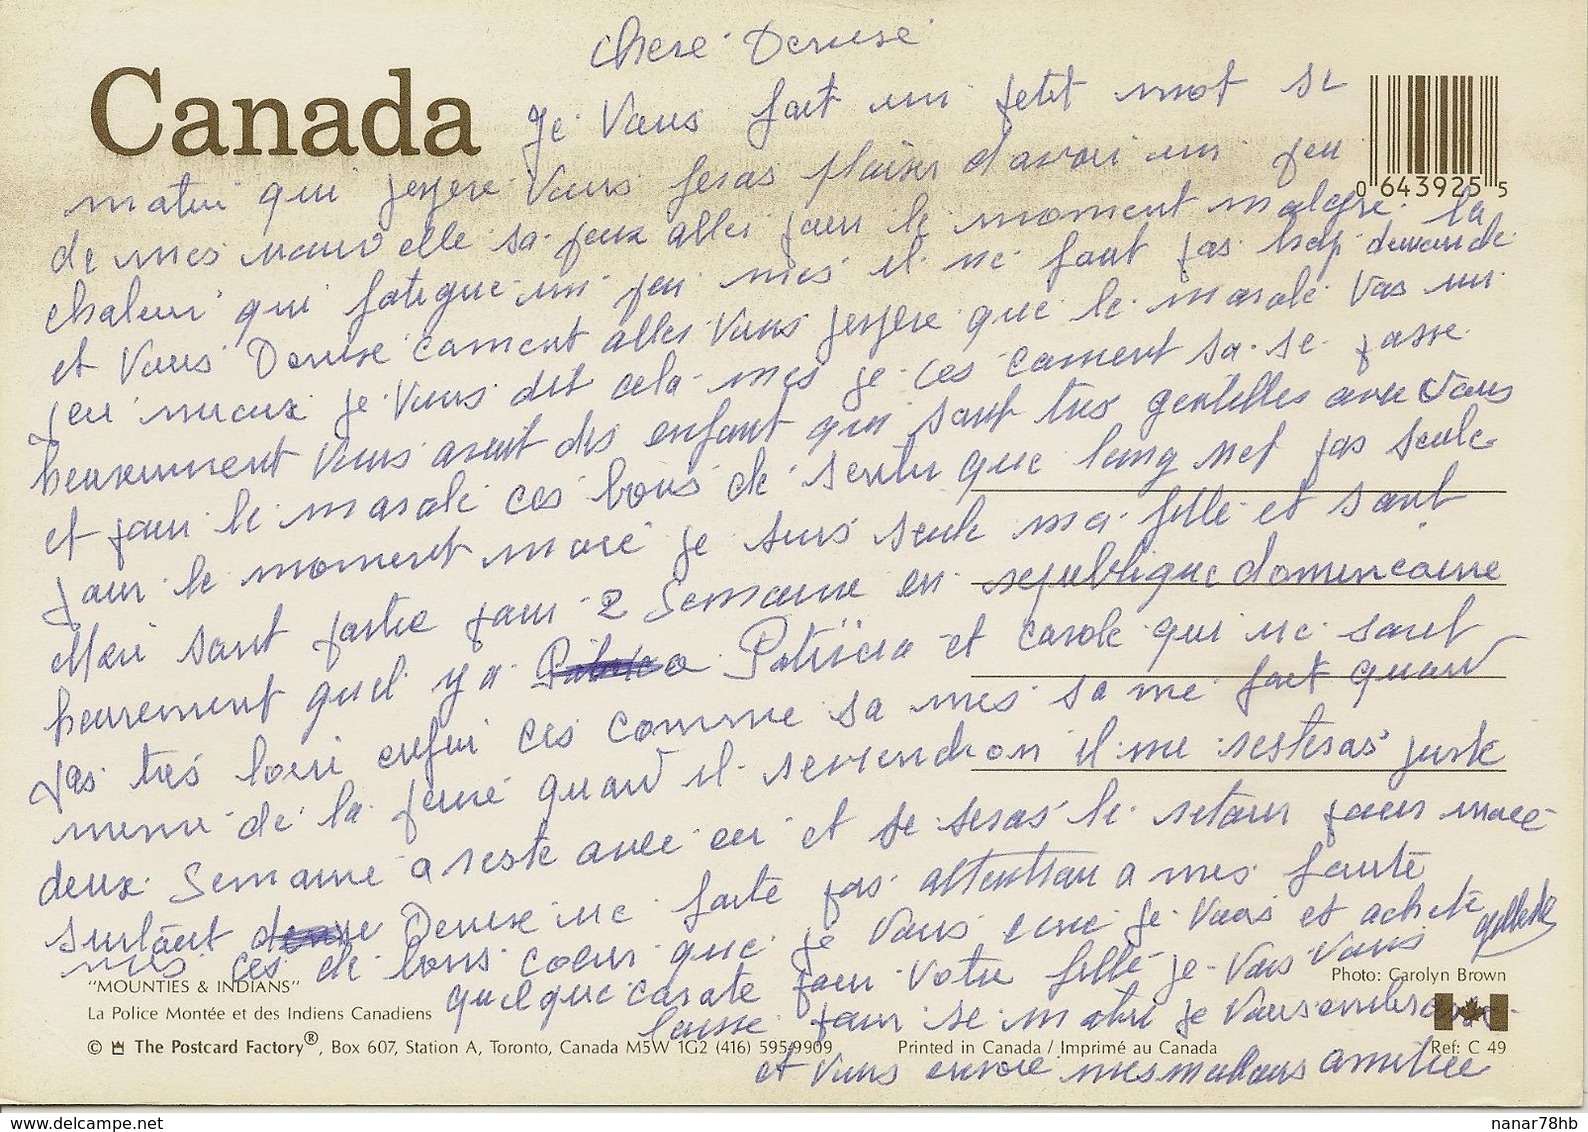 chere Denise
Canada
Je Vous fait un petit mot se
0 643925 5
matin qui jespere Vous feras plaisir d'avoir un peu
de mes nouvelle sa peux aller pour le moment malgre la
chaleur qui fatigue un peu mes il ne faut pas trop demande
et Vous Denise coment aller Vous jespere que le morale Vas un
peu mieux je Vous dit cela mes je ces coment sa se passe
heureusement Vous avait des enfant qui sont tres gentilles avec Vous
et pour le morale ces bons de sentir que long net pas seule
pour le moment moie je suis seule ma fille et sont
Mari sont partie pour 2 Semaine en republique domincaine
heurement quel y a Patricia et carole qui ne sont
pas tres loin enfin ces comme sa mes sa me fait quand
meme de la peine quand il reviendron il me resteras juste
deux Semaine a reste avec eu et se seras le retour pour moie
surtout Denise ne faite pas attention a mes faute
mes ces de bons coeur que je Vous ecrie je Vais et achete
quelque carate pour Votre fille je Vais Vous
laisse pour se matin je Vous embrasse
et Vous envoie mes meilleurs amitiee
"MOUNTIES & INDIANS"
Photo: Carolyn Brown
La Police Montée et des Indiens Canadiens
© The Postcard Factory®, Box 607, Station A, Toronto, Canada M5W 1G2 (416) 595-9909
Printed in Canada / Imprimé au Canada
Ref: C 49
www.delcampe.net
nanar78hb